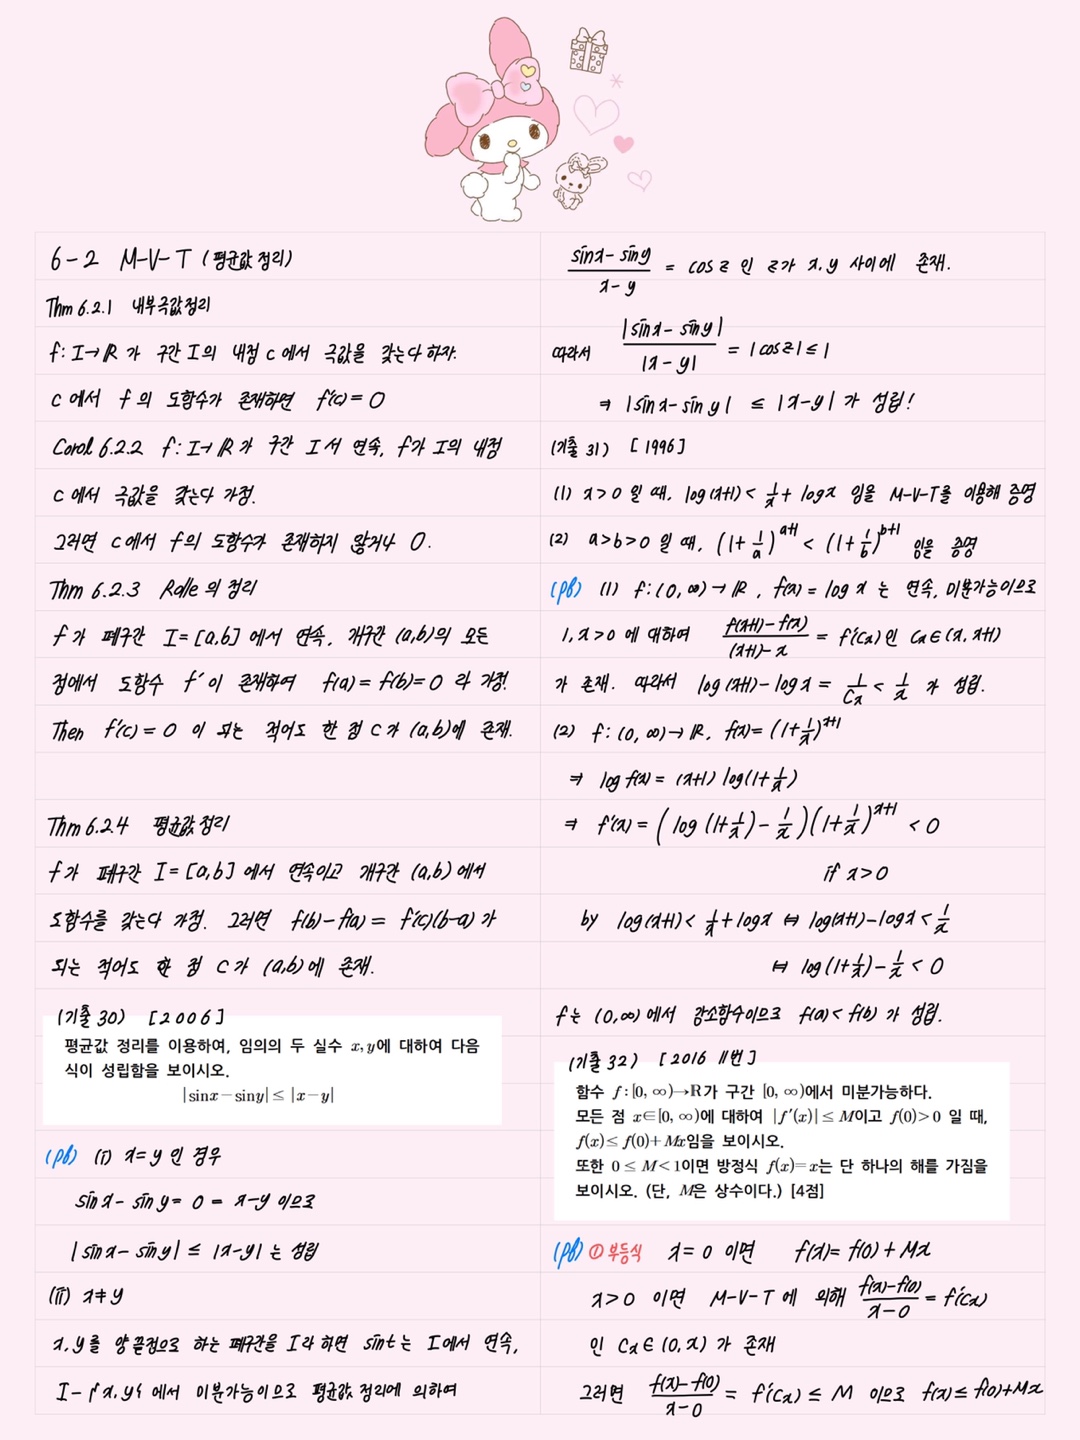 6-2 M-V-T (평균값 정리)
Thm 6.2.1 내부극값정리
f: I→ℝ가 구간 I의 내점 c에서 극값을 갖는다 하자.
c에서 f의 도함수가 존재하면 f'(c)=0
Corol 6.2.2 f: I→ℝ가 구간 I서 연속, f가 I의 내점
c에서 극값을 갖는다 가정.
그러면 c에서 f의 도함수가 존재하지 않거나 0.
Thm 6.2.3 Rolle의 정리
f가 폐구간 I=[a,b]에서 연속, 개구간 (a,b)의 모든
점에서 도함수 f'이 존재하여 f(a)=f(b)=0 라 가정.
Then f'(c)=0 이 되는 적어도 한 점 C가 (a,b)에 존재.
Thm 6.2.4 평균값 정리
f가 폐구간 I=[a,b]에서 연속이고 개구간 (a,b)에서
도함수를 갖는다 가정. 그러면 f(b)-f(a)= f'(c)(b-a)가
되는 적어도 한 점 C가 (a,b)에 존재.
(기출 30) [2006]
평균값 정리를 이용하여, 임의의 두 실수 x,y에 대하여 다음
식이 성립함을 보이시오.
|sinx-siny| ≤ |x-y|
(pf) (i) x=y 인 경우
sinx-siny = 0 = x-y 이므로
|sinx-siny| ≤ |x-y| 는 성립
(ii) x≠y
x,y를 양 끝점으로 하는 폐구간을 I라 하면 sint는 I에서 연속,
I-{x,y}에서 미분가능이므로 평균값 정리에 의하여
(sinx-siny)/(x-y) = cos z 인 z가 x,y 사이에 존재.
따라서 |sinx-siny|/|x-y| = |cosz| ≤ 1
⇒ |sinx-siny| ≤ |x-y|가 성립!
(기출 31) [1996]
(1) x>0 일 때, log(x+1) < 1/x + logx 임을 M-V-T를 이용해 증명
(2) a>b>0 일 때, (1+1/a)^(a+1) < (1+1/b)^(b+1) 임을 증명
(pf) (1) f: (0,∞)→ℝ, f(x)=log x 는 연속, 미분가능이므로
1, x>0 에 대하여 (f(x+1)-f(x))/((x+1)-x) = f'(Cx)인 Cx∈(x, x+1)
가 존재. 따라서 log(x+1)-logx = 1/Cx < 1/x 가 성립.
(2) f: (0,∞)→ℝ, f(x)=(1+1/x)^(x+1)
⇒ log f(x) = (x+1) log(1+1/x)
⇒ f'(x) = (log(1+1/x)-1/x)(1+1/x)^(x+1) < 0
if x>0
by log(x+1) < 1/x + logx ⇔ log(x+1)-logx < 1/x
⇔ log(1+1/x)-1/x < 0
f는 (0,∞)에서 감소함수이므로 f(a)<f(b)가 성립.
(기출 32) [2016 11번]
함수 f:[0, ∞)→ℝ가 구간 [0, ∞)에서 미분가능하다.
모든 점 x∈[0, ∞)에 대하여 |f'(x)| ≤ M이고 f(0)>0 일 때,
f(x) ≤ f(0)+Mx임을 보이시오.
또한 0 ≤ M<1이면 방정식 f(x)=x는 단 하나의 해를 가짐을
보이시오. (단, M은 상수이다.) [4점]
(pf) ① 부등식 x=0 이면 f(x)=f(0)+Mx
x>0 이면 M-V-T에 의해 (f(x)-f(0))/(x-0) = f'(Cx)
인 Cx∈(0,x)가 존재
그러면 (f(x)-f(0))/(x-0) = f'(Cx) ≤ M 이므로 f(x) ≤ f(0)+Mx